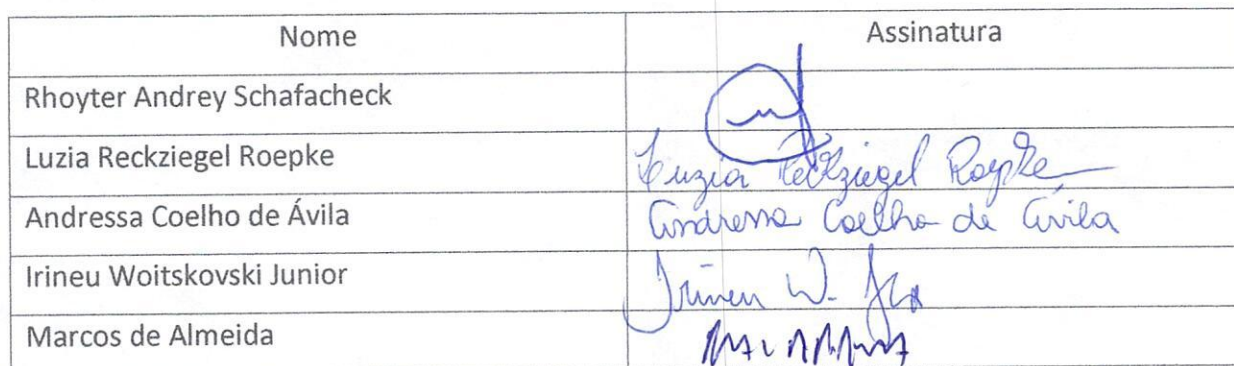 Nome Assinatura
Rhoyter Andrey Schafacheck
Luzia Reckziegel Roepke Luzia Reckziegel Roepke
Andressa Coelho de Ávila Andressa Coelho de Ávila
Irineu Woitskovski Junior Irineu W. Jr
Marcos de Almeida